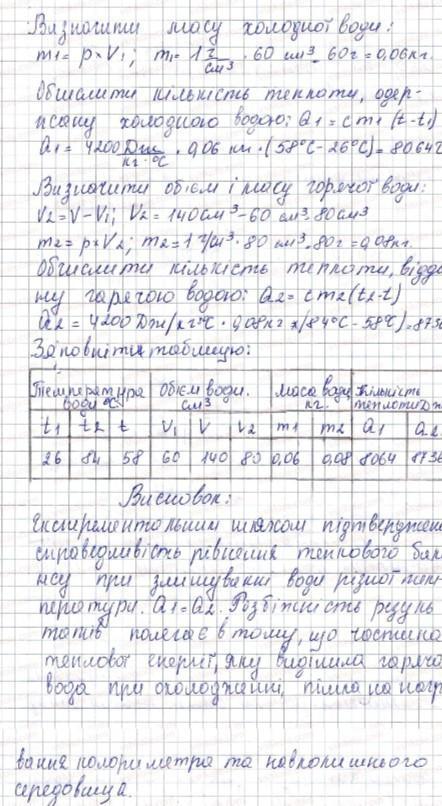 Визначити масу холодної води:
m1 = p × V1; m1 = 1 г/см³ · 60 см³ = 60г = 0,06кг.
Обчислити кількість теплоти, одер-
жану холодною водою: Q1 = cm1 (t-t1)
Q1 = 4200 Дж/кг·°C · 0,06 кг · (58°C - 26°C) = 8064
Визначити об'єм і масу гарячої води:
V2 = V - V1; V2 = 140см³ - 60 см³ = 80см³
m2 = p × V2; m2 = 1г/см³ · 80 см³ = 80г = 0,08кг.
Обчислити кількість теплоти, відда
ну гарячою водою: Q2 = cm2(t2-t)
Q2 = 4200 Дж/кг°C · 0,08кг × (84°C - 58°C) = 8736
Заповнити таблицю:
Температура води °C Об'єм води. см³ Маса води кг. Кількість теплоти Дж
t1 t2 t V1 V V2 m1 m2 Q1 Q2
26 84 58 60 140 80 0,06 0,08 8064 8736
Висновок:
Експериментальним шляхом підтверджено
справедливість рівняння теплового бала
нсу при змішуванні води різної тем-
ператури. Q1 = Q2. Розбіжність резуль
татів полягає в тому, що частина
теплової енергії, яку виділила гаряча
вода при охолодженні, пішла на нагр
вання калориметра та навколишнього
середовища.